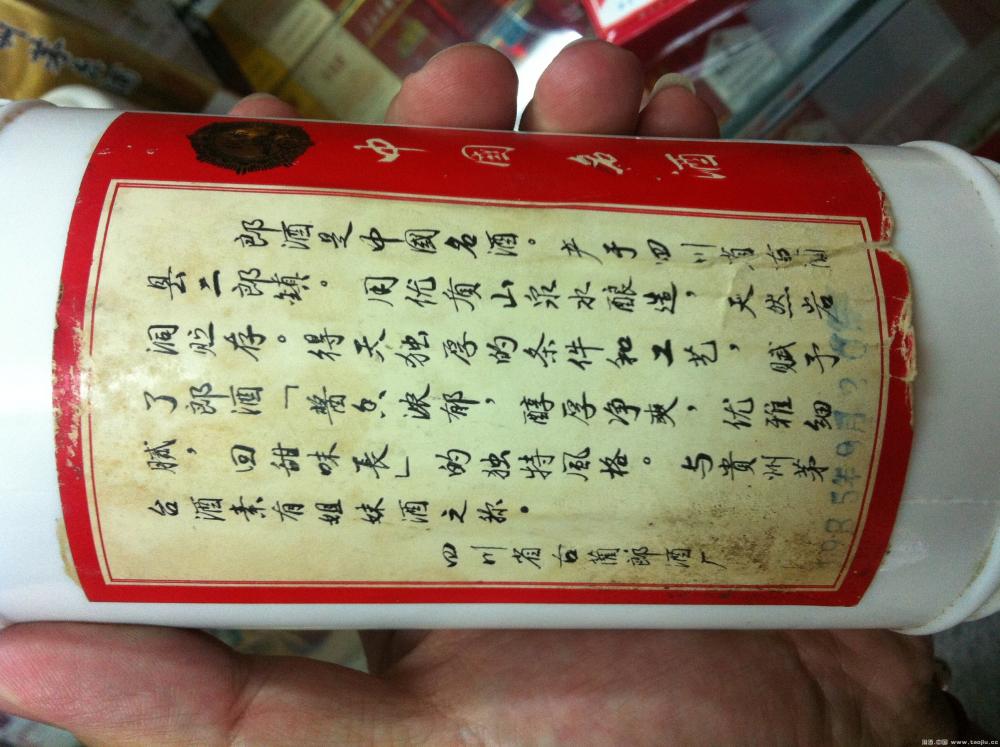 中国名酒
郎酒是中國名酒。产于四川省古蔺
县二郎镇。用优质山泉水酿造，天然岩
洞贮存。得天独厚的条件和工艺，赋予
了郎酒「酱香浓郁，醇厚净爽，优雅细
腻，回甜味长」的独特风格。与貴州茅
台酒素有姐妹酒之称。
四川省古蔺郎酒厂
www.taojiu.cc